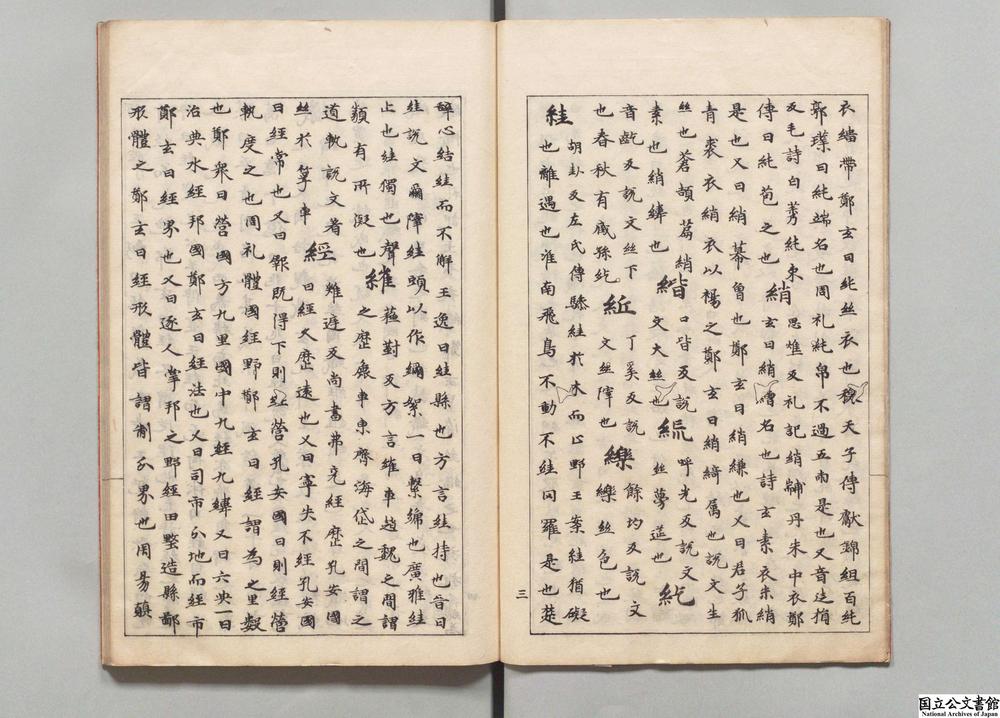 衣繢帶鄭玄曰純絲衣也穆天子傳獻錦組百純
郭璞曰純端名也周礼純帛不過五兩是也又音之損
反毛詩白茅純束
傳曰純苞之也
絹思燋反礼記絹黼丹朱中衣鄭
玄曰絹繒名也詩云素衣朱絹
是也又曰絹幕魯也鄭玄曰絹縑也又曰君子狐
青裘衣絹衣以裼之鄭玄曰絹綺属也說文生
絲也蒼頡萹絹
素也絹繂也
緒口皆反說
文大絲也
䋄呼光反說文
絲蔓莚也
紇
音齕反說文絲下
也春秋有臧孫紇
䋊丁奚反說
文絲滓也
纅餘灼反說文
纅絲色也也
絓
胡卦反左氏傳驂絓於木而止野王案絓猶礙
也離遇也淮南飛鳥不動不絓冈羅是也楚
辞心結絓而不解王逸曰絓縣也方言絓持也晉曰
絓說文繭滓絓頭以作繃絮一曰繫繃也廣雅絓
止也絓獨也聲
類有所㝵也
維蘓對反方言維車趙魏之間謂
之歷鹿車東齊海岱之間謂之
道軌說文着
絲於筟車
經雞迋反尚書弗克經歷孔安國
曰經久歷遠也又曰寧失不經孔安國
曰經常也又曰厥既得卜則經營孔安國曰則經營
軌度之也周礼體國經野鄭玄曰經謂為之里數
也鄭衆曰營國方九里國中九經九緯又曰六典一曰
治典以經邦國鄭玄曰經法也又曰司市分地而經市
鄭玄曰經界也又曰遂人掌邦之野經田壄造縣鄙
形體之鄭玄曰經形體皆謂制分界也周易顛
三
国立公文書館
National Archives of Japan